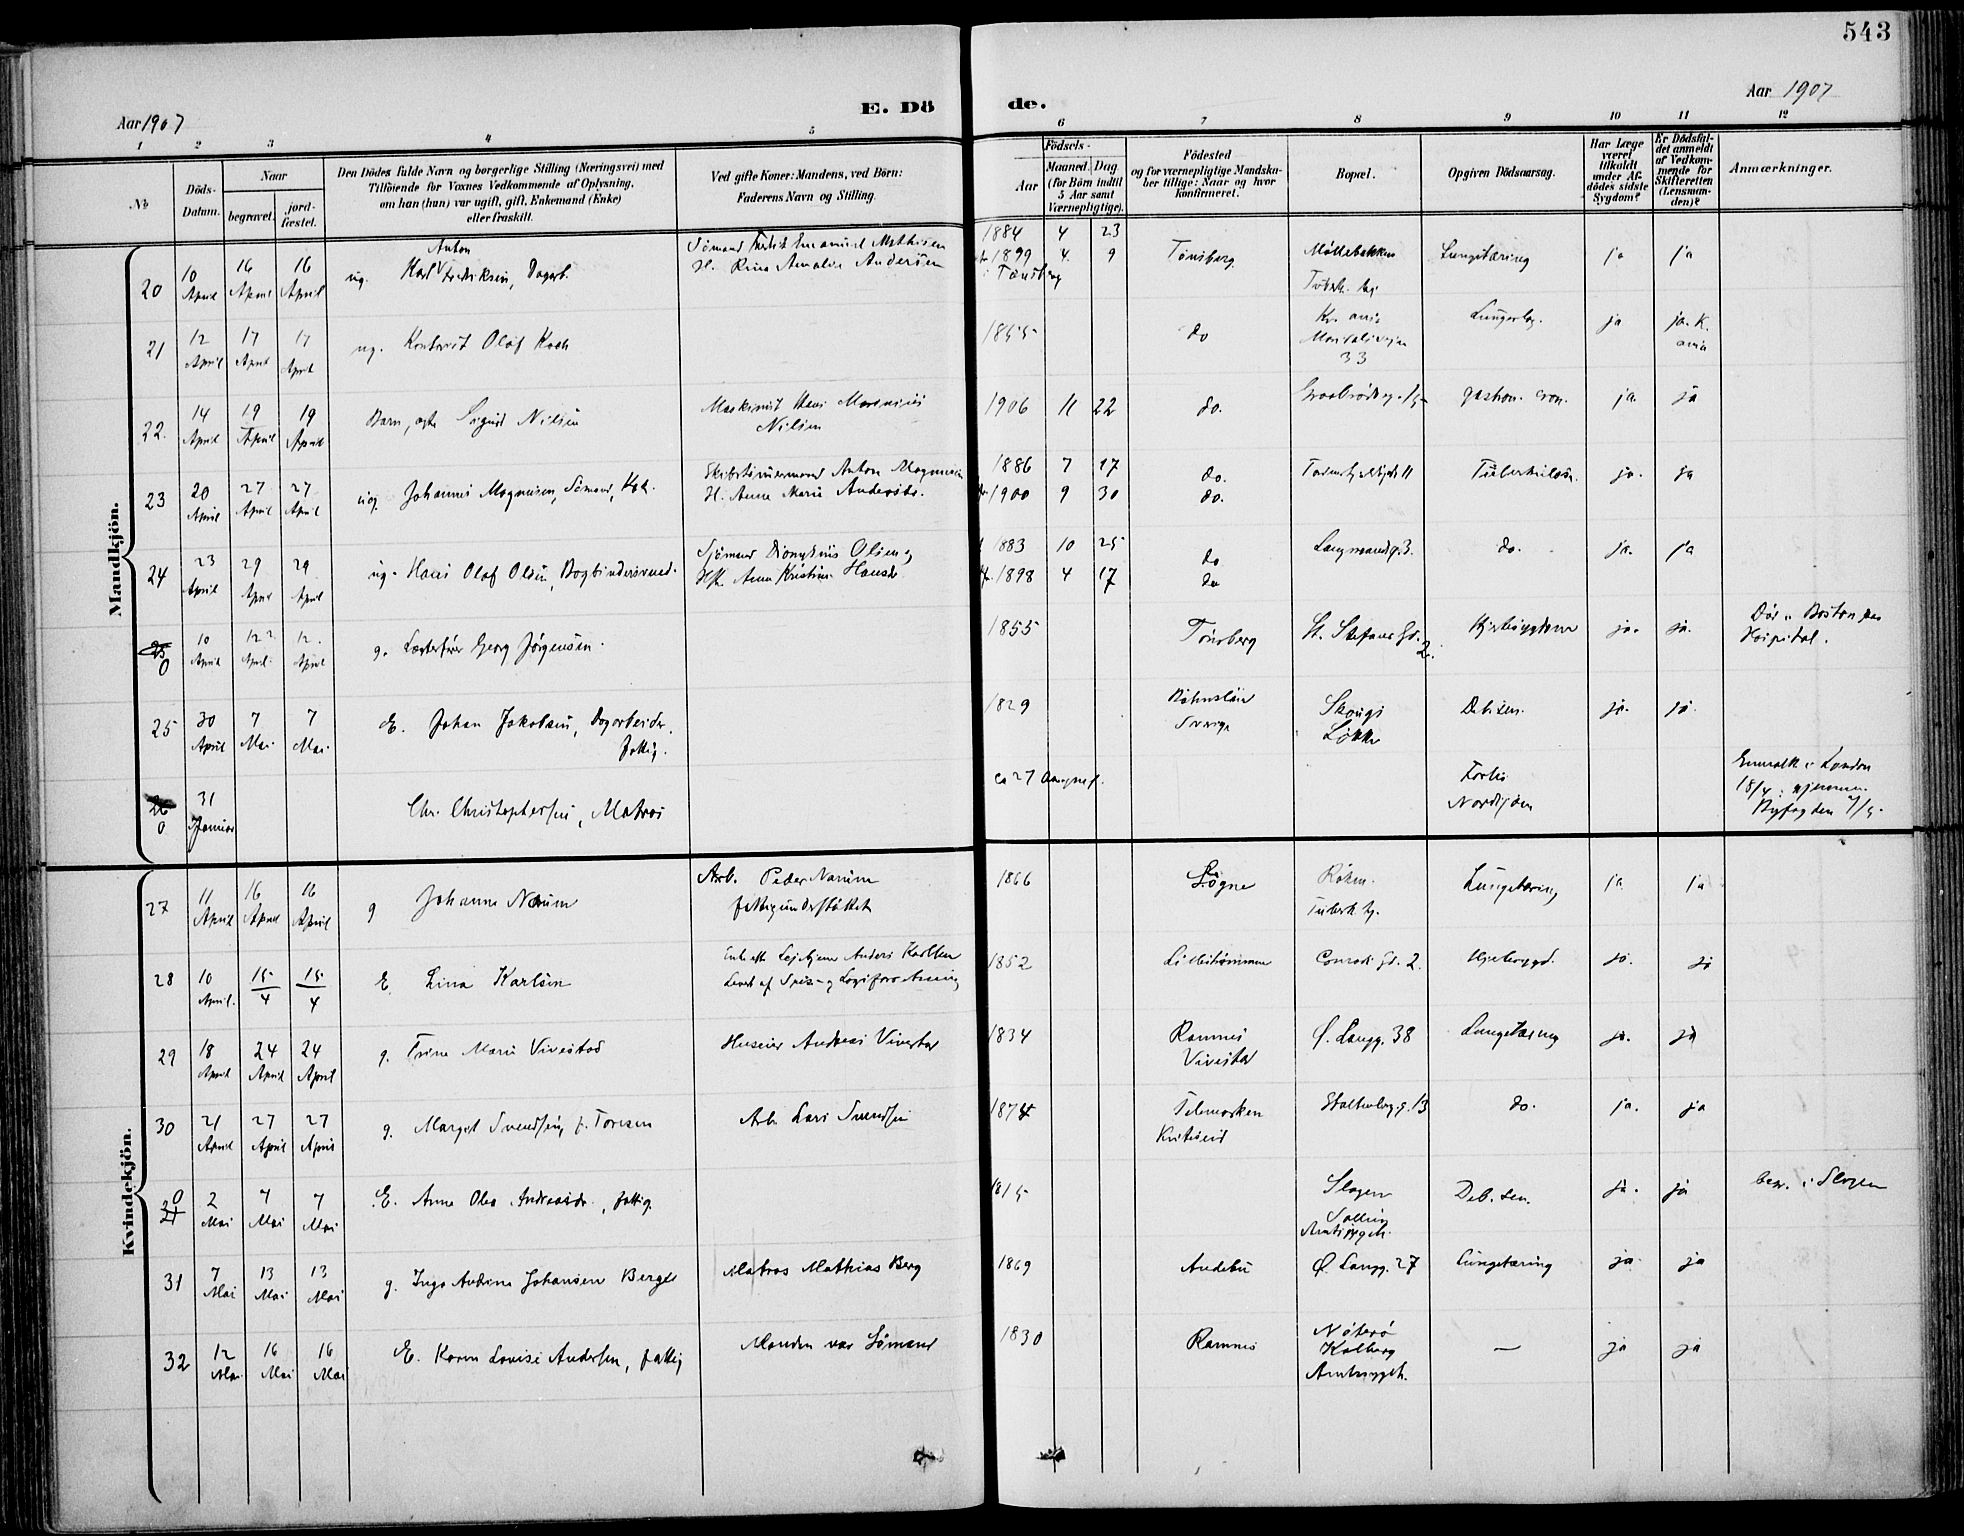 543
Aar 1907
E. Dö
de.
Aar 1907
1 2 3 4 5 6 7 8 9 10 11 12
№
Döds-
Datum.
Naar
begravet.
jord-
fæstet.
Den Dödes fulde Navn og borgerlige Stilling (Næringsvei) med
Tilföiende for Voxnes Vedkommende af Oplysning,
om han (hun) var ugift, gift, Enkemand (Enke)
eller fraskilt.
Ved gifte Koner: Mandens, ved Börn:
Faderens Navn og Stilling.
Födsels-
Aar
Maaned.
Dag
(for Børn indtil
5 Aar samt
Værnepligtige).
Födested
og for værnepligtige Mandska-
ber tillige: Naar og hvor
konfirmeret.
Bopæl.
Opgiven Dödsaarsag.
Har Læge
været
tilkaldt
under Af-
dødes sidste
Sygdom?
Er Dödsfal-
det anmeldt
af Vedkom-
mende for
Skifteretten
(Lensman-
den)?
Anmærkninger.
Mandkjön.
20 10 April 16 April 16 April ug. Karl Anton Fredriksen, Dagarb. Sømand Emanuel Mathisen
H. Rina Amalie Andersen
1884 4 23
1899 4 9
i Tønsberg
Tønsberg. Møllebakken
Lungetæring ja ja
21 12 April 17 April 17 April ug. Kontorist Olaf Koch 1855 do Kr. ania
33
ja ja. K.
ania
22. 14 April 19 April 19 April Barn, ægte Sigurd Nilsen Maskinist Hans
Nilsen
1906 11 22 do. ja. ja
23 20 April 27 April 27 April ug. Johannes Magnussen, Sømand, Anton Magnussen
H. Anne Marie
1886 7 17 do.
1900 9 30 do.
Tuberkulose. ja. ja
24 23 April 29 April 29 April ug. Hans Olaf Olsen, Bogbindersvend. Sjømand Dionysius Olsen og
Hst. Anne Kristine
1883 10 25 do
1898 4 17 do
do. ja. ja
25 0 10 April 12 April 12. April g. Georg Jørgensen. 1855 Tønsberg St. Stefans Gd.
2.
Hjertesygdom ja. ja. Død i Boston paa
Hospital.
25 30 April 7 Mai 7 Mai. E. Johan Jakobsen, Dagarbeider.
fattig.
1829 Bohuslän
Sverige
Skougs
Løkke
Deb. sen. ja. ja.
26 0 31 Januar Chr. Christophersen, Matros ca 27 Aar gml. Forlis
Nordsjøen
London
18/4
Byfogden
Kvindekjön.
27 11 April 16 April 16 April g Johanne Narum Arb. Peder Narum
fattigunderstøttet
1866 Løgne
Tuberk. hj.
Lungetæring ja ja
28 10 April. 15/4 15/4 E. Lina Karlsen Enke eft. Anders Karlsen
Levet af Spise- og Logiforretning
1852 Lillehammer Conradi Gd. 2. Hjertesygd. ja. ja
29 18 April 24 April 24 April g. Trine Marie Vivestad Huseier Andreas Vivestad 1834 Ramnes
Vivestad
Ø. Langg. 38 Lungetæring ja. ja
30 21 April 27 April 27 April g. Margit Svendsen, f. Toresen Arb. Lars Svendsen 1874 Telemarken
Kviteseid
Stoltenbergg. 13 do. ja. ja
31 0 2 Mai 7 Mai 7 Mai E. Anne Olea Andreasdr., fattig. 1815 Slagen
Solliens
Amtssygeh.
Deb. sen. ja. ja begr. i Slagen
31 7 Mai 13 Mai 13 Mai g. Inga Andrine Johansen Berge Matros Mathias Berg 1869 Andebu Ø. Langg. 27 Lungetæring ja ja
32 12 Mai 16 Mai 16 Mai E. Karen Lovise Andersen, fattig Manden var Sømand 1830 Ramnes Nøterø
Kolberg
Amtssygeh.
— ja ja